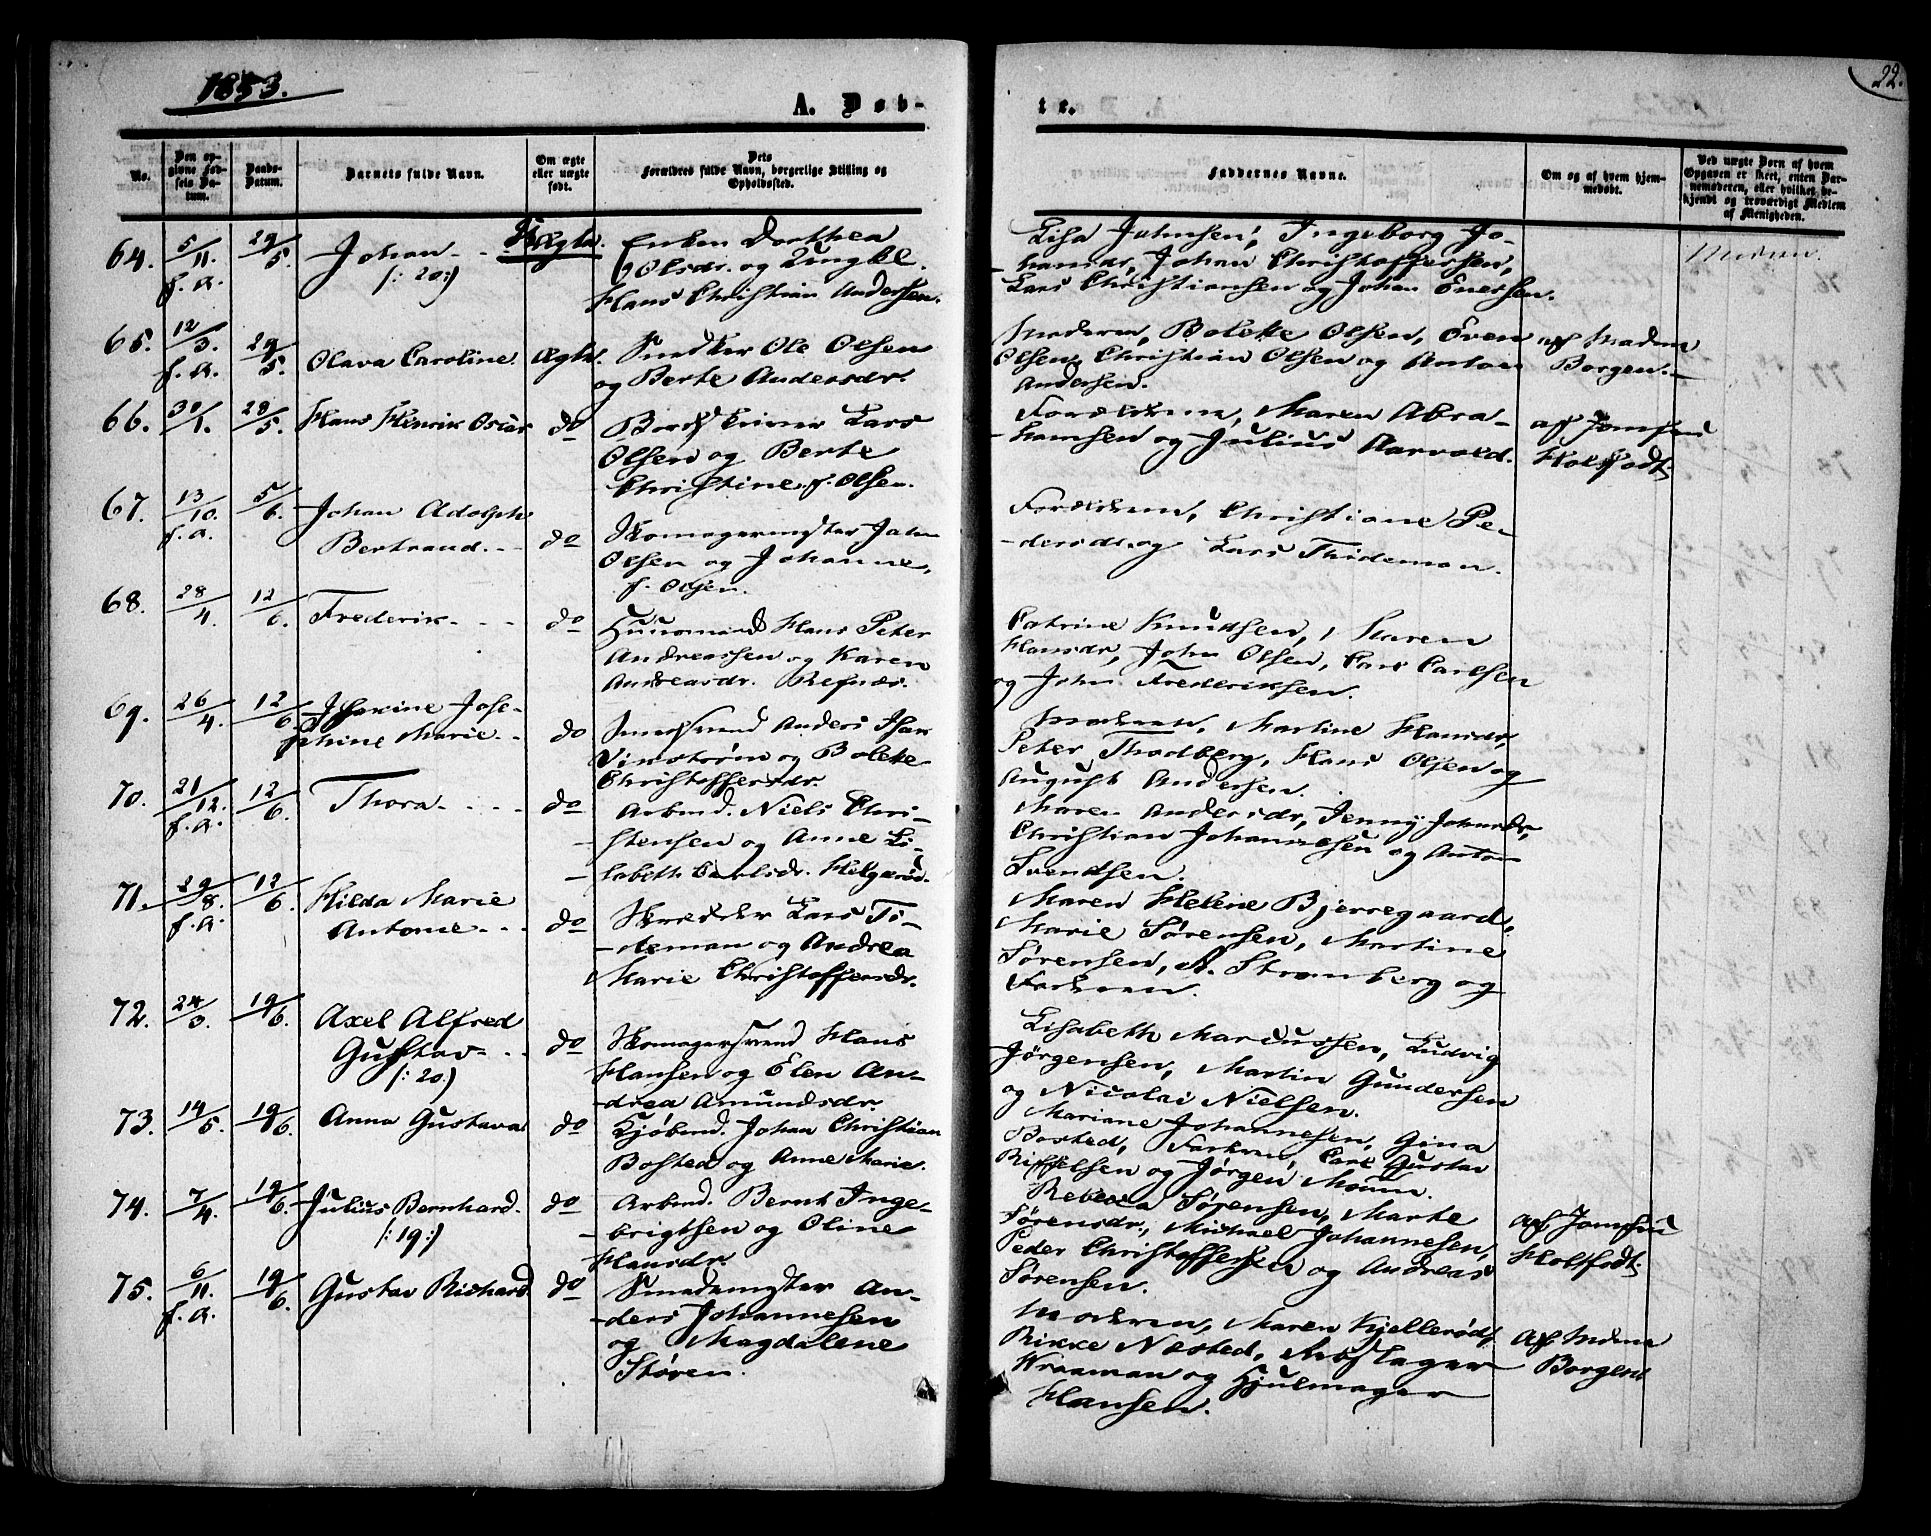 1853.
A. Døb-
te.
22.
No.
Den op-
givne Fød-
sels Da-
tum.
Daabs-
Datum.
Barnets fulde Navn.
Om ægte
eller uægte
født.
Dets
Forældres fulde Navn, borgerlige Stilling og
Opholdssted.
Faddernes Navne.
Om og af hvem hjem-
medøbt.
Ved uægte Børn af hvem
Opgaven er skeet, enten Bar-
nemoderen, eller hvilket be-
kjendt og troværdigt Medlem
af Menigheden.
64.
5/11.
f. A.
29/5.
Johan
(: 20:)
Uægte.
Enken Dorthea
Olsdr. og Ungkl.
Hans Christian Andersen.
Lisa Johnsen, Ingeborg Jo-
hansdr, Johan Christoffersen,
Lars Christiansen og Johan Evensen.
65.
12/3.
f. A.
29/5.
Olava Caroline.
Ægte.
Snedker Ole Olsen
og Berte Andersdr.
Moderen, Bolette Olsen, Even
Olsen, Christian Olsen og Anton
Andersen.
af Madm
Borgen.
66.
30/1.
28/5.
Hans Henrik Oscar
do
Lars
Olsen og Berte
Christine f. Olsen.
Forældrene, Maren Abra-
hamsen og Julius Aarvold.
af Jomfru
Holtfodt.
67.
13/10.
f. a.
5/6.
Johan Adolph
Bertrand.
do
Skomagermester John
Olsen og Johanne,
f. Olsen.
Forældrene, Christiane Pe-
dersdr og Lars Thideman.
68.
28/4.
12/6.
Frederik
do
Huusmand Hans Peter
Andreassen og Karen
Andreasdr. Refnæs.
Catrine Knudsen, Maren
Hansdr, John Olsen, Lars Carlsen
og John Frederiksen.
69.
26/4.
12/6.
Josefine Jose-
phine Marie
do
Smedsvend Anders Isac
Vinstrøm og Bolette
Christoffersdr.
Moderen, Martine Hansdr,
Peter Thodberg, Hans Olsen og
August Andersen.
70.
21/12.
f. A.
12/6.
Thora
do
Arbmd. Niels Chri-
stensen og Anne Li-
sabeth Carlsdr. Helgerød.
Maren Andersdr, Jenny Johnsdr,
Christian Johannesen og Anton
Svendsen.
71.
29/8.
f. A.
12/6.
Hilda Marie
Antonie
do
Skrædder Lars Ti-
deman og Andrea
Marie Christoffersdr.
Maren Helene Bjerregaard,
Marie Sørensen, Martine
Sørensen, A. Strømberg og
Faderen.
72.
24/3.
19/6.
Axel Alfred
Gustav
(: 20:)
do
Skomagersvend Hans
Hansen og Elen An-
drea Amundsdr.
Lisabeth Marcussen, Ludvig
Jörgensen, Martin Gundersen
og Nicolai Nielsen.
73.
14/5.
19/6.
Anna Gustava
do
Kjøbmd. Johan Christian
Bosted og Anne Marie.
Mariane Johannesen, Gina
Bosted, Faderen, Carl Gustav
Riffelsen og Jørgen Moum.
74.
7/4.
19/6.
Julius Bernhard.
(: 19:)
do
Arbmd. Bernt Inge-
brigtsen og Oline
Hansdr.
Rebecca Sørensen, Marte
Sørensdr., Michael Johannesen,
Peder Christoffersen og Andreas
Sørensen.
af Jomfru
Holtfodt.
75.
6/11.
f. A.
19/6.
Gustav Richard
do
Smedemester An-
ders Johannesen
og Magdalene
Støren.
Moderen, Maren Kjellerød,
Rikke Næsted,
Kraaman og Hjulmager
Hansen.
af Mdme
Borgen